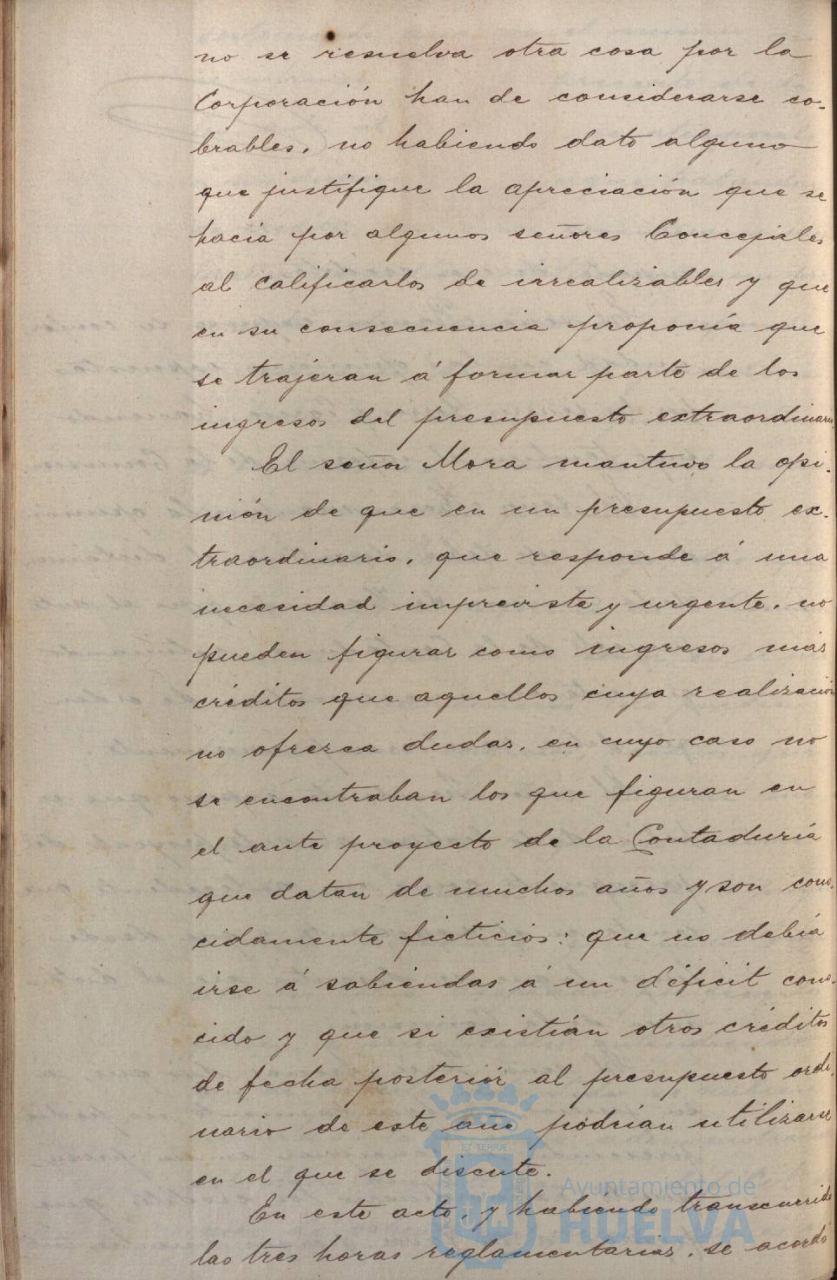 no se resuelva otra cosa por la
Corporación han de considerarse co-
brables, no habiendo dato alguno
que justifique la apreciación que se
hacía por algunos señores Concejales
al calificarlos de irrealizables y que
en su consecuencia proponía que
se trajeran á formar parte de los
ingresos del presupuesto extraordinario
El señor Mora mantuvo la opi-
nión de que en un presupuesto ex-
traordinario, que responde á una
necesidad imprevista y urgente, no
pueden figurar como ingresos más
créditos que aquellos cuya realización
no ofrezca dudas, en cuyo caso no
se encontraban los que figuran en
el ante proyecto de la Contaduría
que datan de muchos años y son cono-
cidamente ficticios: que no debía
irse á sabiendas á un déficit cono-
cido y que si existían otros créditos
de fecha posterior al presupuesto ordi-
nario de este año podrían utilizarse
en el que se discute.
En este acto, y habiendo transcurrido
las tres horas reglamentarias, se acordó
Ayuntamiento de
HUELVA